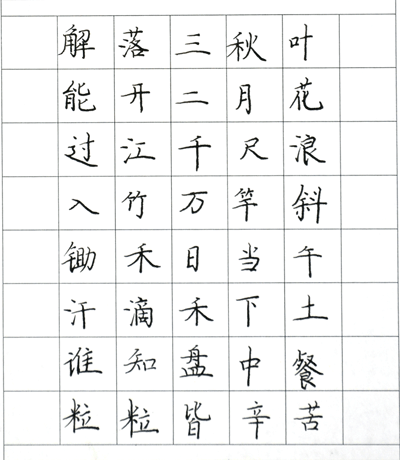 解落三秋叶
能开二月花
过江千尺浪
入竹万竿斜
锄禾日当午
汗滴禾下土
谁知盘中餐
粒粒皆辛苦